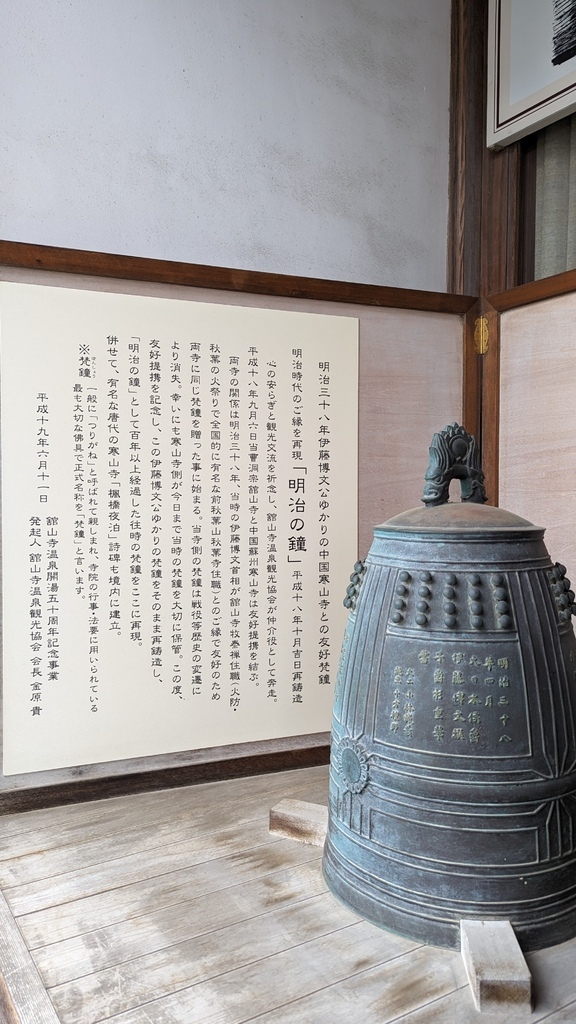 明治三十八年伊藤博文公ゆかりの中国寒山寺との友好梵鐘
明治時代のご縁を再現「明治の鐘」平成十八年十月吉日再鋳造
心の安らぎと観光交流を祈念し、舘山寺温泉観光協会が仲介役として奔走。
平成十八年九月六日当曹洞宗舘山寺と中国蘇州寒山寺は友好提携を結ぶ。
両寺の関係は明治三十八年、当時の伊藤博文首相が舘山寺牧巻禅住職（火防・
秋葉の火祭りで全国的に有名な前秋葉山秋葉寺住職）とのご縁で友好のため
両寺に同じ梵鐘を贈った事に始まる。当寺側の梵鐘は戦役等歴史の変遷に
より消失。幸いにも寒山寺側が今日まで当時の梵鐘を大切に保管。この度、
友好提携を記念し、この伊藤博文公ゆかりの梵鐘をそのまま再鋳造し、
「明治の鐘」として百年以上経過した往時の梵鐘をここに再現。
併せて、有名な唐代の寒山寺「楓橋夜泊」詩碑も境内に建立。
※梵鐘 一般に「つりがね」と呼ばれて親しまれ、寺院の行事・法要に用いられている
ぼんしょう
最も大切な佛具で正式名称を「梵鐘」と言います。
平成十九年六月十一日
舘山寺温泉開湯五十周年記念事業
発起人 舘山寺温泉観光協会 会長 金原 貴
明治三十八
年四月